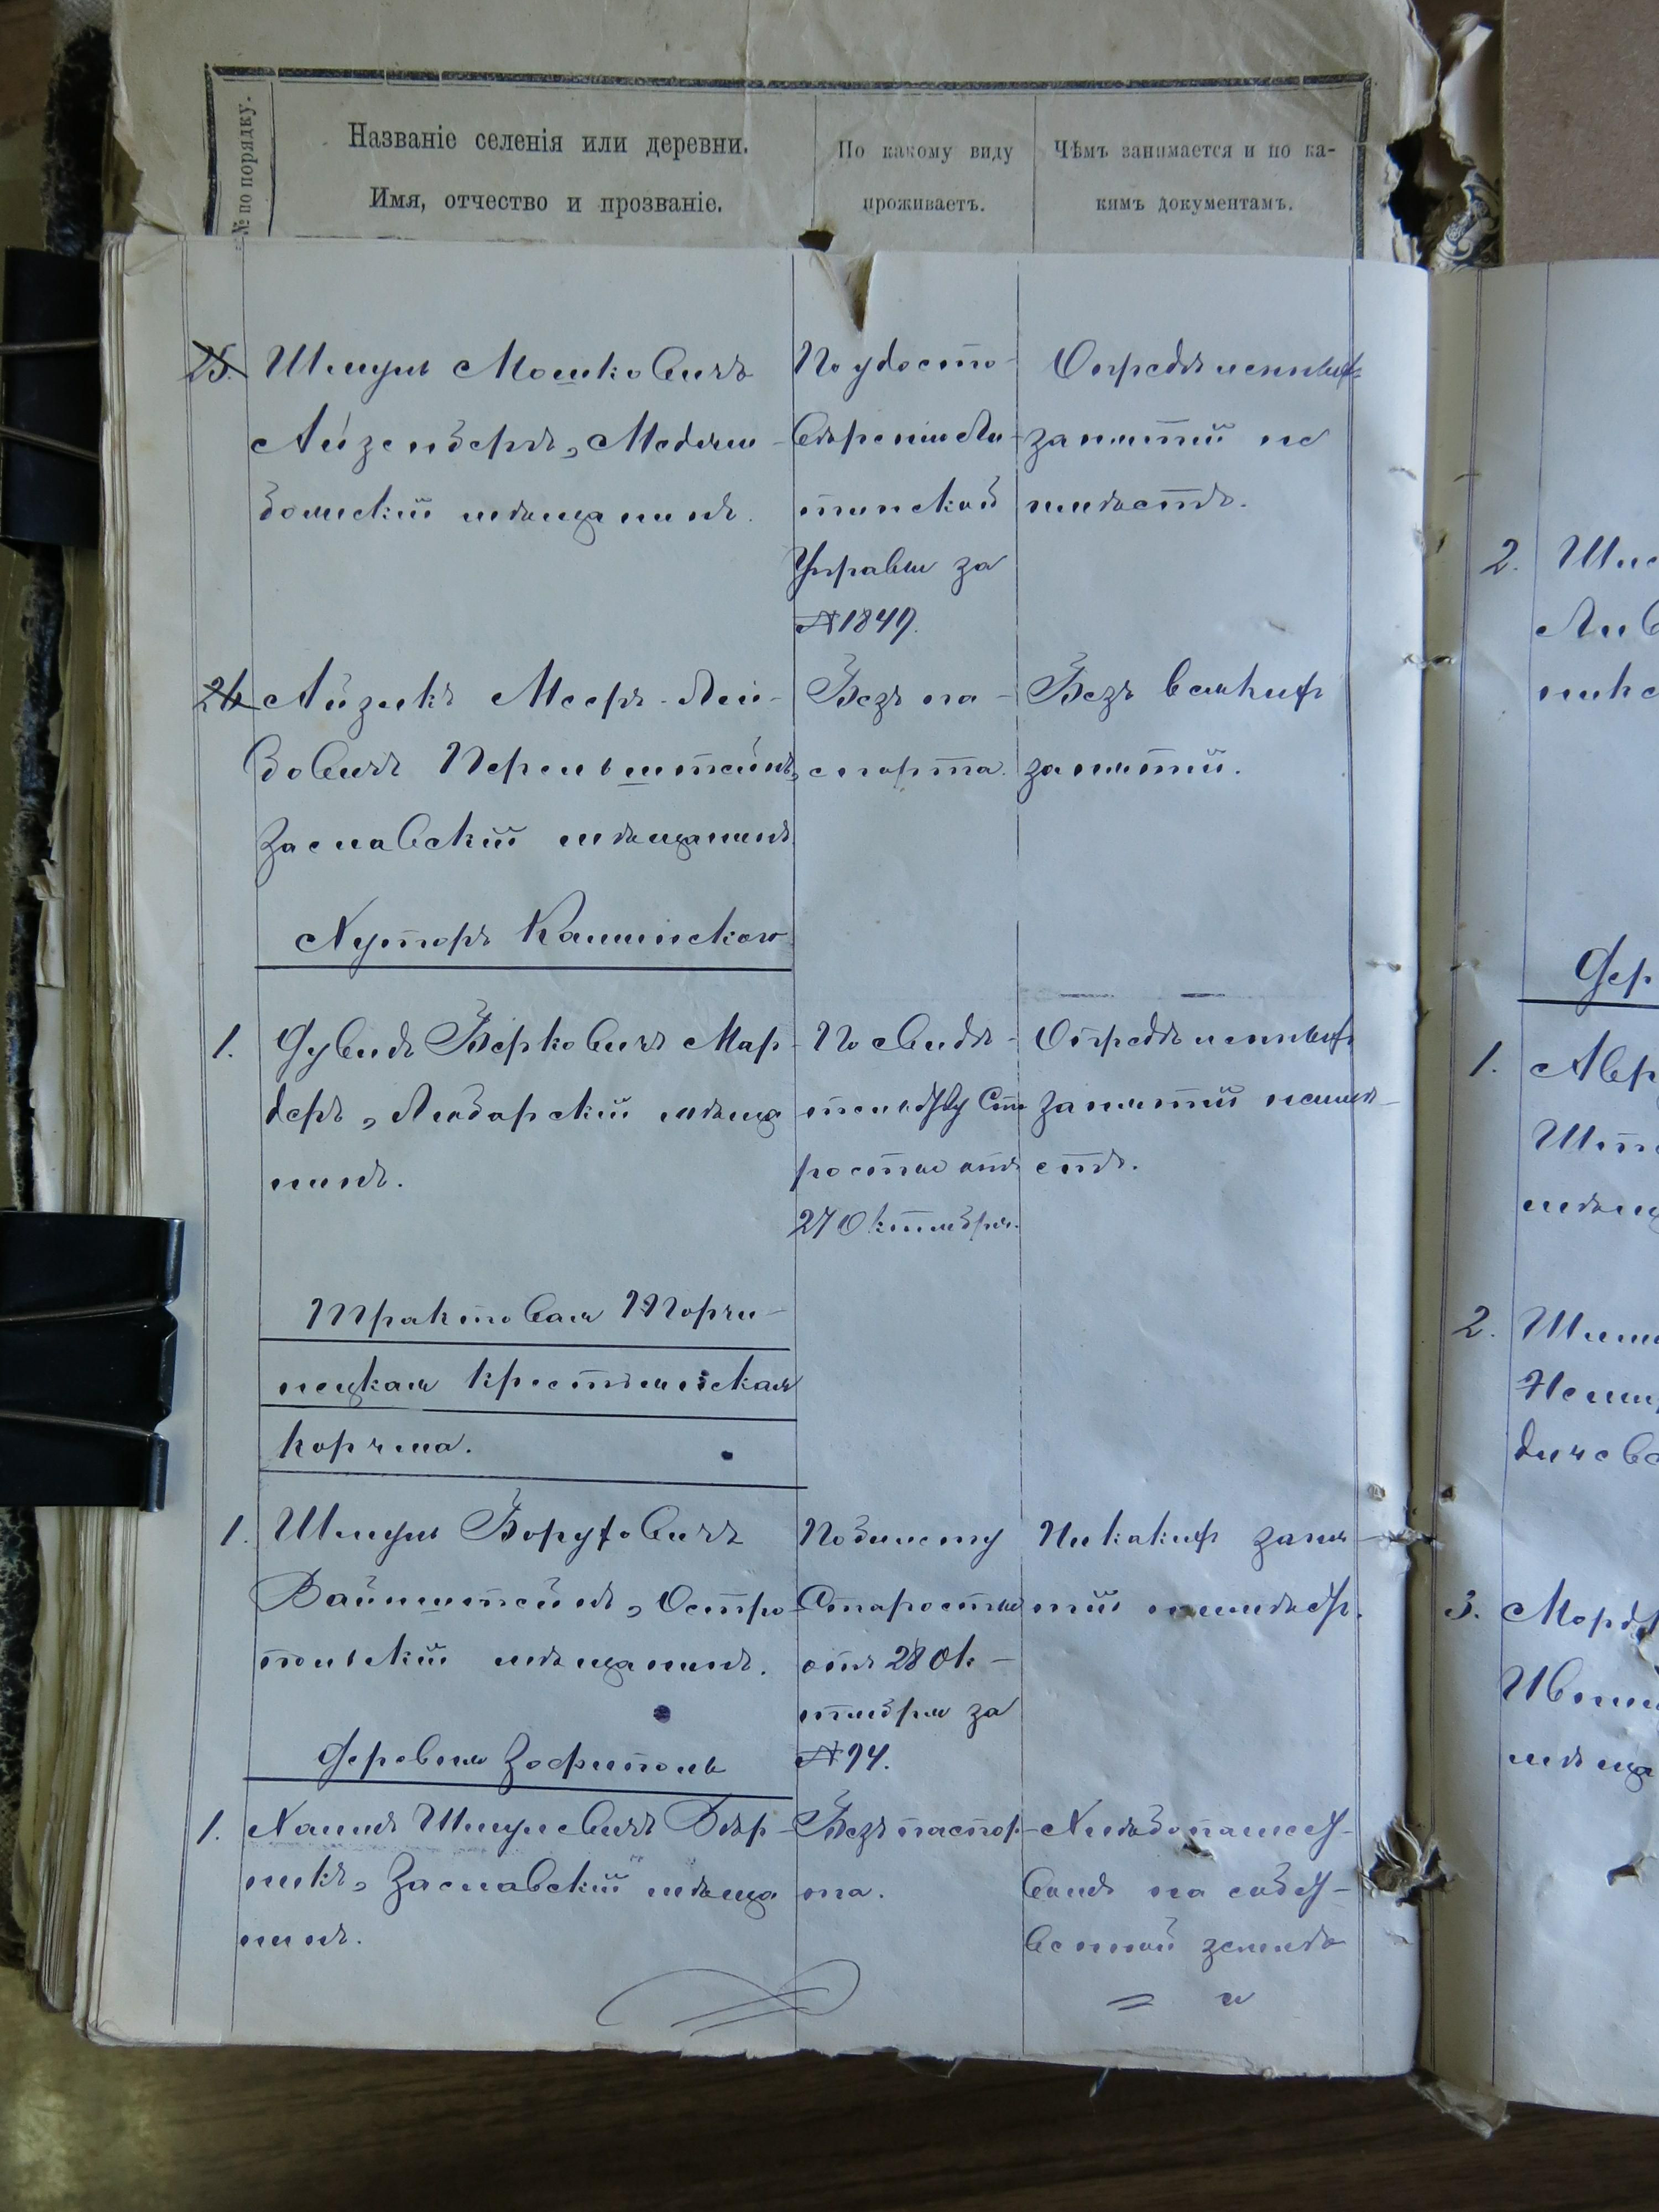 № по порядку.
Названіе селенія или деревни.
Имя, отчество и прозваніе.
По какому виду
проживаетъ.
Чѣмъ занимается и по ка-
кимъ документамъ.
25. Шмуль Мошковичъ
Айзенберъ, Меджи-
божскій мѣщанинъ.
По удосто-
вѣренію
тинской
Управы за
№ 1849.
Опредѣленныхъ
занятій не
имѣетъ.
26 Айзикъ Мееръ-Лей-
бовичъ Перельштейнъ,
Заславскій мѣщанинъ.
Безъ па-
спорта.
Безъ всякихъ
занятій.
Хуторъ Калинского
1. Дувидъ Берковичъ Мар-
деръ, Любарскій мѣща
нинъ.
По свидѣ-
тельству Ста
росты отъ
27 Октября.
Опредѣленныхъ
занятій неимѣ-
етъ.
Трактовая Торчи-
нецкая крестьянская
корчма.
1. Шмуль Боруховичъ
Вайнштейнъ, Остро-
польскій мѣщанинъ.
По билету
Старосты
отъ 28 Ок-
тября за
№ 94.
Никакихъ заня-
тій неимѣетъ.
Деревня Зофиполь
1. Хаимъ Шмулевичъ Вѣр-
никъ, Заславскій мѣща
нинъ.
Безъ паспор-
та.
Хлѣбопашест-
вомъ на собст-
венной землѣ
= и
2.
Дер
1. Авр
2.
дичевс
3. Морд
мѣща